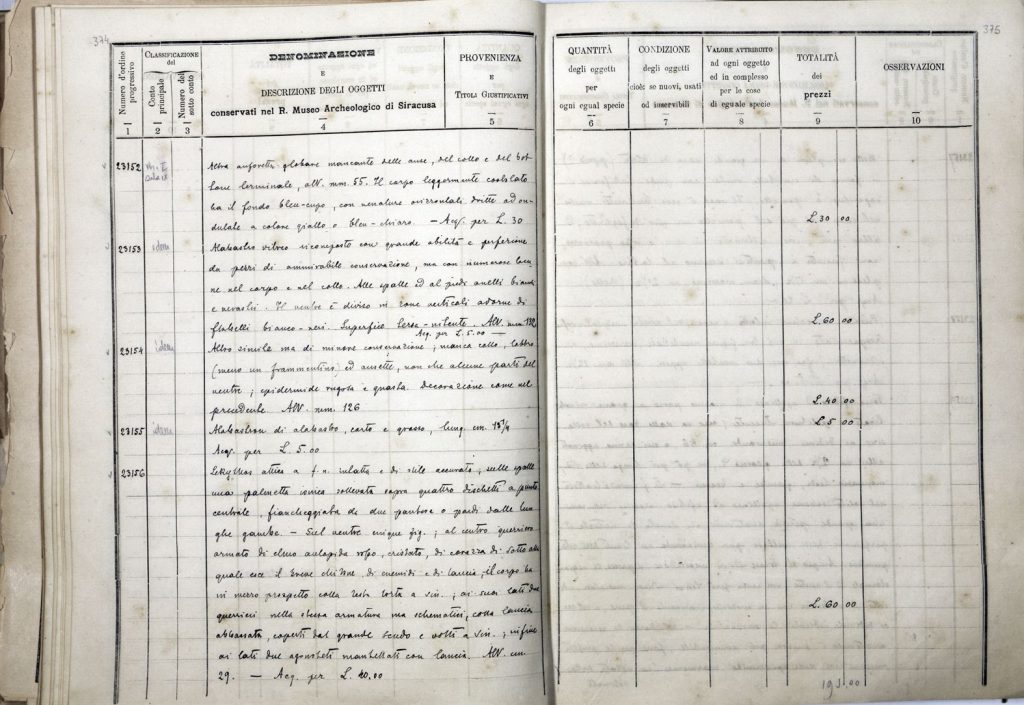 374
375
Numero d'ordine progressivo
CLASSIFICAZIONE
del
Conto principale
Numero del sotto conto
DENOMINAZIONE
E
DESCRIZIONE DEGLI OGGETTI
conservati nel R. Museo Archeologico di Siracusa
PROVENIENZA
E
TITOLI GIUSTIFICATIVI
QUANTITÀ
degli oggetti
per
ogni egual specie
CONDIZIONE
degli oggetti
cioè: se nuovi, usati
od inservibili
VALORE ATTRIBUITO
ad ogni oggetto
ed in complesso
per le cose
di eguale specie
TOTALITÀ
dei
prezzi
OSSERVAZIONI
1 2 3 4 5 6 7 8 9 10
23152 Altra anforetta globare mancante delle anse, del collo e del bot-
tone terminale, alt. mm. 55. Il corpo leggermente costolato
ha il fondo bleu-cupo, con venature orizzontali dritte ad on-
dulate a colore giallo o bleu-chiaro. — Acq. per L. 30 L. 30 00
23153 idem Alabastro vitreo ricomposto con grande abilità e perfezione
da pezzi di ammirabile conservazione, ma con numerose lacu-
ne nel corpo e nel collo. Alle spalle ed al piedi anelli bianchi
e nerastri. Il ventre è diviso in zone verticali adorne di
flabelli bianco-neri. Superficie terso-nitente. Alt. mm. 132 L. 60 00
Acq. per L. 5.00 —
23154 idem Altro simile ma di minore conservazione; manca collo, labbro
(meno un frammentino) ed ansette, non che alcune parti del
ventre; epidermide rugosa e guasta. Decorazione come nel
precedente. Alt. mm. 126 L. 40 00
23155 idem Alabastron di alabastro, corto e grosso, lung. cm. 15 1/4 L. 5 00
Acq. per L. 5.00
23156 Lekythos attica a f. n. intatta e di stile accurato; sulle spalle
una palmetta ionica sollevata sopra quattro dischetti a punto
centrale, fiancheggiata da due pantere o pardi dalle lun-
ghe gambe. — Sul ventre cinque fig.; al centro guerriero
armato di elmo aulopide, cristato, di corazza di sotto alla
quale esce il breve chitone, di cnemidi e di lancia; il corpo ha
in mezzo prospetto colla testa torta a sin.; ai suoi lati due
guerrieri nella stessa armatura ma schematici, colla lancia
abbassata, coperti dal grande scudo e volti a sin.; infine L. 60 00
ai lati due agonisteti mantellati con lancia. Alt. cm.
29. — Acq. per L. 40.00
195.00